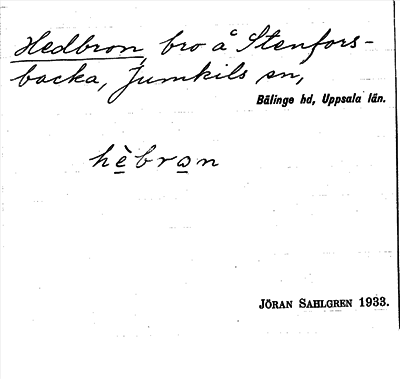 Hedbron, bro å Stenfors-
backa, Jumkils sn,
Bälinge hd, Uppsala län.
hèbrɷn
JÖRAN SAHLGREN 1933.